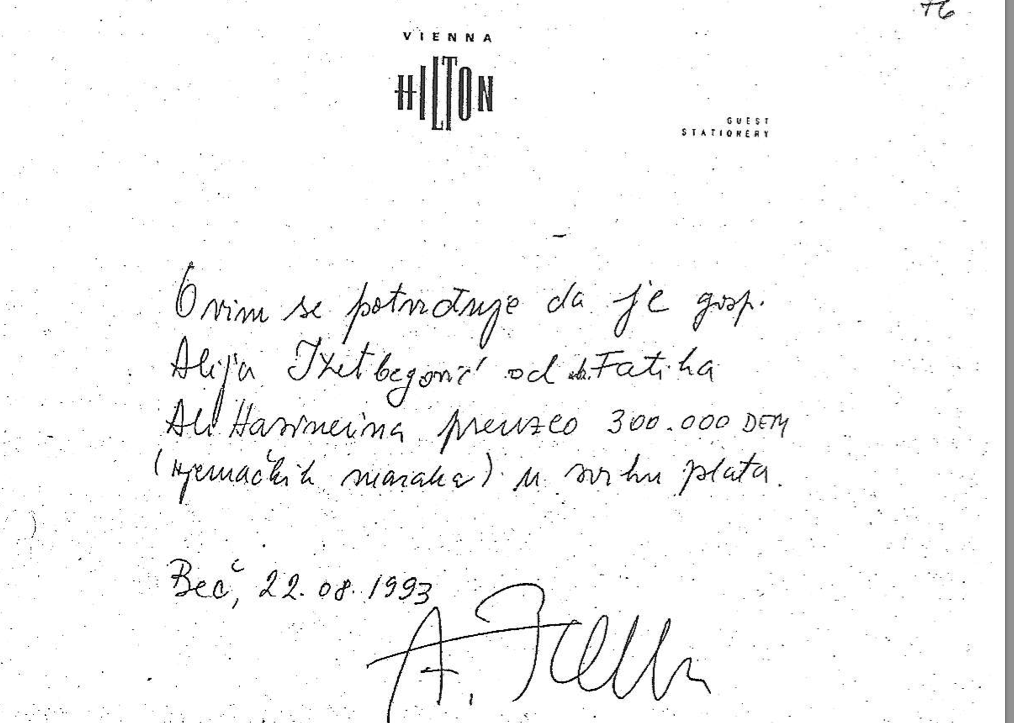 76
VIENNA
HILTON
GUEST
STATIONERY
Ovim se potvrđuje da je gosp.
Alija Izetbegović od dr. Fatiha
Ali Hasineina preuzeo 300.000 DEM
(njemačkih maraka) u svrhu plata.
Beč, 22.08.1993
A.